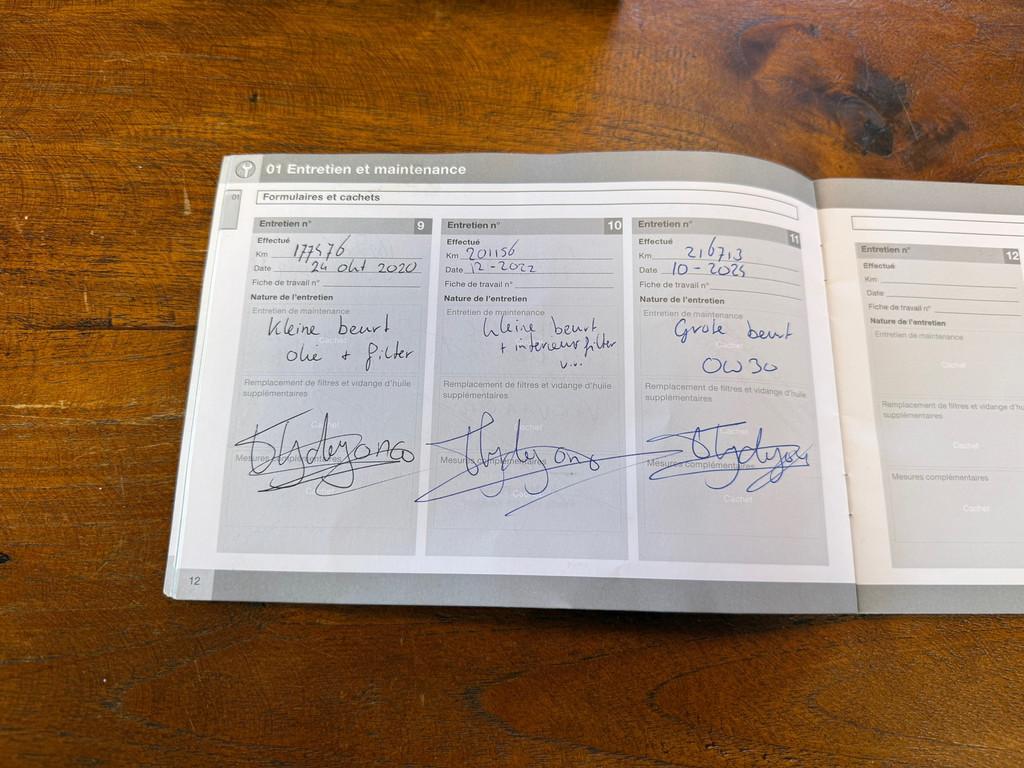 01 Entretien et maintenance
01
Formulaires et cachets
Entretien n° 9
Effectué
Km 177476
Date 24 okt 2020
Fiche de travail n°
Nature de l'entretien
Entretien de maintenance
Kleine beurt
Cachet
olie + filter
Remplacement de filtres et vidange d'huile
supplémentaires
Cachet
Mesures complémentaires
Cachet
12
Entretien n° 10
Effectué
Km 201156
Date 12-2022
Fiche de travail n°
Nature de l'entretien
Entretien de maintenance
kleine beurt
+ interieur filter
Remplacement de filtres et vidange d'huile
supplémentaires
Cachet
Mesures complémentaires
Cachet
Entretien n° 11
Effectué
Km 216713
Date 10-2024
Fiche de travail n°
Nature de l'entretien
Entretien de maintenance
Grote beurt
Cachet
0W30
Remplacement de filtres et vidange d'huile
supplémentaires
Cachet
Mesures complémentaires
Cachet
Entretien n° 12
Effectué
Km
Date
Fiche de travail n°
Nature de l'entretien
Entretien de maintenance
Cachet
Remplacement de filtres et vidange d'huile
supplémentaires
Cachet
Mesures complémentaires
Cachet